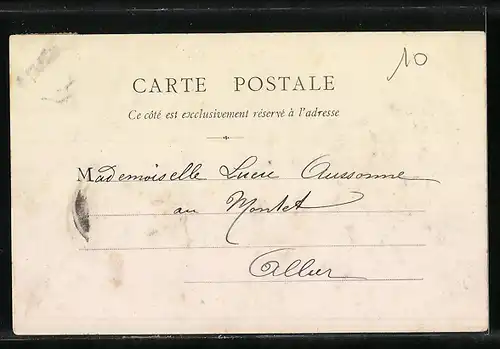 10
CARTE POSTALE
Ce côté est exclusivement réservé à l'adresse
Mademoiselle Lucie Aussonne
au Montet
Allier